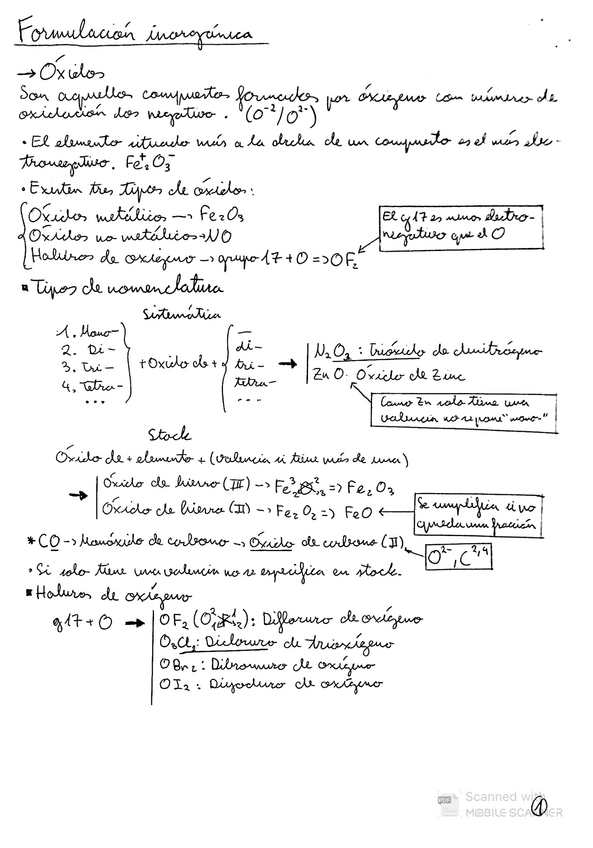 Formulación inorgánica
→ Óxidos
Son aquellos compuestos formados por óxigeno con número de
oxidación dos negativo. (O⁻²/O²⁻)
• El elemento situado más a la drcha de un compuesto es el más elec-
tronegativo. Fe₂⁺O₃⁻
• Existen tres tipos de óxidos:
Óxidos metálicos → Fe₂O₃
Óxidos no metálicos → NO
Haluros de oxígeno → grupo 17 + O => OF₂
El g17 es menos electro-
negativo que el O
▪ Tipos de nomenclatura
Sistemática
1. Mono-
2. Di-
3. Tri-
4. Tetra-
...
+ Oxido de +
—
di-
tri-
tetra-
---
→
N₂O₃ : Trióxido de dinitrógeno
ZnO· Óxido de Zinc
Como Zn solo tiene una
valencia no se pone "mono-"
Stock
Óxido de + elemento + (valencia si tiene más de una)
→ Óxido de hierro (III) → Fe₂³O₃² => Fe₂O₃
Óxido de hierro (II) → Fe₂O₂ => FeO
Se simplifica si no
queda una fracción
* CO → Monóxido de carbono → Óxido de carbono (II)
O²⁻, C²,⁴
• Si solo tiene una valencia no se especifica en stock.
▪ Haluros de oxígeno
g17 + O → OF₂ (O₁²F₂¹): Difloruro de oxígeno
O₃Cl₂: Dicloruro de trioxígeno
OBr₂ : Dibromuro de oxígeno
OI₂ : Diyoduro de oxígeno
Scanned with
PDF
MOBILE SCANNER
1